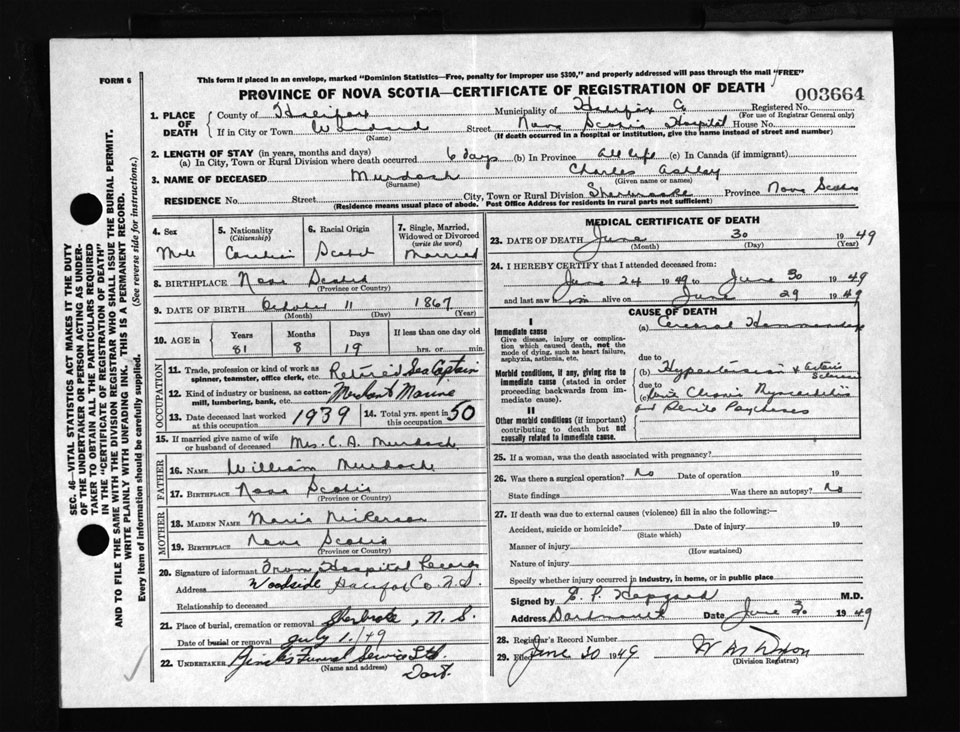 FORM 6
This form if placed in an envelope, marked "Dominion Statistics—Free, penalty for improper use $300," and properly addressed will pass through the mail "FREE"
PROVINCE OF NOVA SCOTIA—CERTIFICATE OF REGISTRATION OF DEATH
003664
1. PLACE OF DEATH
County of Halifax Municipality of Halifax Co Registered No.
(For use of Registrar General only)
If in City or Town Street Nova Scotia Hospital House No.
(Name) (If death occurred in a hospital or institution, give the name instead of street and number)
2. LENGTH OF STAY (in years, months and days)
(a) In City, Town or Rural Division where death occurred 6 days (b) In Province all life (c) In Canada (if immigrant)
3. NAME OF DECEASED Murdoch Charles Ashley
(Surname) (Given name or names)
RESIDENCE No. Street City, Town or Rural Division Sherbrooke Province Nova Scotia
(Residence means usual place of abode. Post Office Address for residents in rural parts not sufficient)
4. Sex
Male
5. Nationality
(Citizenship)
Canadian
6. Racial Origin
Scotch
7. Single, Married, Widowed or Divorced
(write the word)
Married
8. BIRTHPLACE Nova Scotia
(Province or Country)
9. DATE OF BIRTH October 11 1867
(Month) (Day) (Year)
10. AGE in
Years Months Days If less than one day old
81 8 19 hrs. or min.
OCCUPATION
11. Trade, profession or kind of work as spinner, teamster, office clerk, etc. Retired Sea Captain
12. Kind of industry or business, as cotton mill, lumbering, bank, etc. Merchant Marine
13. Date deceased last worked at this occupation 1939
14. Total yrs. spent in this occupation 50
15. If married give name of wife or husband of deceased Mrs. C. A. Murdoch
FATHER
16. NAME William Murdoch
17. BIRTHPLACE Nova Scotia
(Province or Country)
MOTHER
18. MAIDEN NAME Maria Nickerson
19. BIRTHPLACE Nova Scotia
(Province or Country)
20. Signature of informant From Hospital Records
Address Woodside Halifax Co. N.S.
Relationship to deceased
21. Place of burial, cremation or removal Sherbrooke, N.S.
Date of burial or removal July 1./49
22. UNDERTAKER Funeral Service Ltd.
(Name and address)
Dart.
MEDICAL CERTIFICATE OF DEATH
23. DATE OF DEATH June 30 1949
(Month) (Day) (Year)
24. I HEREBY CERTIFY that I attended deceased from:
June 24 1949 to June 30 1949
and last saw him alive on June 29 1949
CAUSE OF DEATH
I
Immediate cause
Give disease, injury or complication which caused death, not the mode of dying, such as heart failure, asphyxia, asthenia, etc.
(a) Cerebral Haemorrhage
due to
Morbid conditions, if any, giving rise to immediate cause (stated in order proceeding backwards from immediate cause).
(b) Hypertension & Arterio Sclerosis
due to
(c) Chronic Myocarditis
and Senile Psychoses
II
Other morbid conditions (if important) contributing to death but not causally related to immediate cause.
25. If a woman, was the death associated with pregnancy?
26. Was there a surgical operation? No Date of operation 19
State findings Was there an autopsy? No
27. If death was due to external causes (violence) fill in also the following:—
Accident, suicide or homicide? Date of injury 19
(State which)
Manner of injury
(How sustained)
Nature of injury
Specify whether injury occurred in industry, in home, or in public place
Signed by M.D.
Address Dartmouth Date June 30 1949
28. Registrar's Record Number
29. Filed June 30 1949
(Division Registrar)
SEC. 46—VITAL STATISTICS ACT MAKES IT THE DUTY OF THE UNDERTAKER OR PERSON ACTING AS UNDERTAKER TO OBTAIN ALL THE PARTICULARS REQUIRED IN THE "CERTIFICATE OF REGISTRATION OF DEATH" AND TO FILE THE SAME WITH THE DIVISION REGISTRAR WHO SHALL ISSUE THE BURIAL PERMIT.
WRITE PLAINLY WITH UNFADING INK. THIS IS A PERMANENT RECORD.
Every item of information should be carefully supplied. (See reverse side for instructions.)